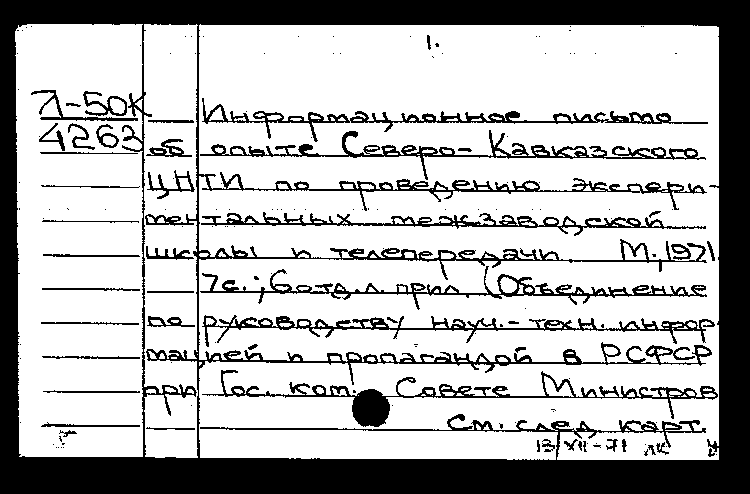 1.
Л-50К
4263
Информационное письмо
об опыте Северо-Кавказского
ЦНТИ по проведению экспери-
ментальных межзаводской
школы и телепередачи. М., 1971.
7с.; 6 отд. л. прил. (Объединение
по руководству науч.-техн. инфор-
мацией и пропагандой в РСФСР
при Гос. ком. Совете Министров
См. след. карт.
13/XII-71 ЛК